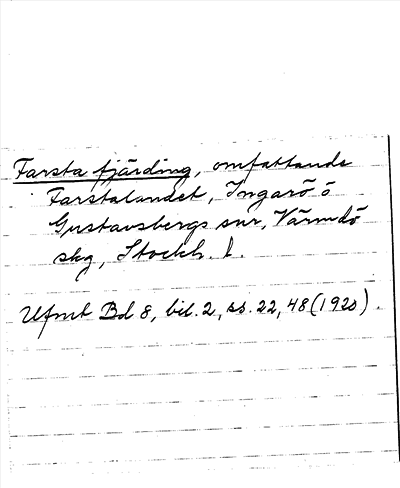 Farsta fjärding, omfattande
Farstalandet, Ingarö ö
Gustavsbergs snr, Värmdö
skg, Stockh. l.
Ufmt Bd 8, bil. 2, ss. 22, 48 (1920).